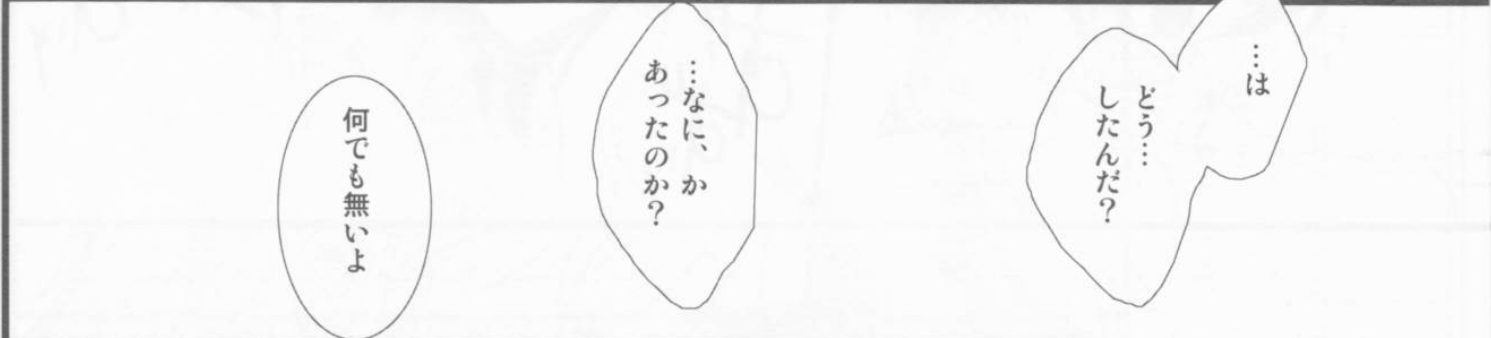 …は
どう…
したんだ？
…なに、か
あったのか？
何でも無いよ